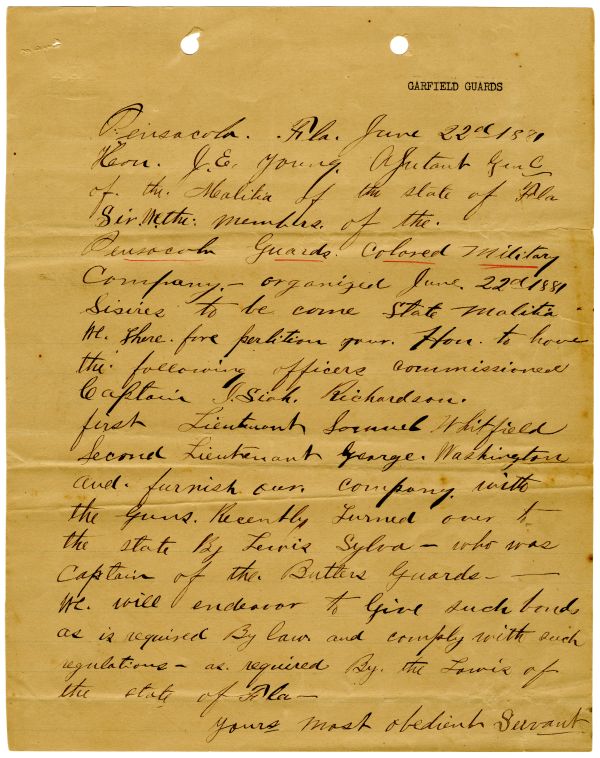 GARFIELD GUARDS
Pensacola. Fla. June 22nd 1881
Hon. J.E. Young. Ajutant Gen
of. the. Malitia of the state of Fla
Sir. We the: members. of the.
Pensacola Guards. Colored Military
Company, - organized June. 22nd 1881
Disires to be come State Malitia
We. there. fore petition your. Hon. to have
the. following officers commissioned
Captain I. Siah. Richardson.
first Lieutenant Samuel Whitfield
Second Lieutenant George. Washington
and. furnish our. company. with
the guns. Recently turned over to
the state By Lewis Sylva - who was
Captain of the. Butlers Guards. -
We. will endeavor to Give such bonds
as is required By law. and comply with such
regulations - as. required By. the Lawis of
the state of Fla -
yours most obedient Servant